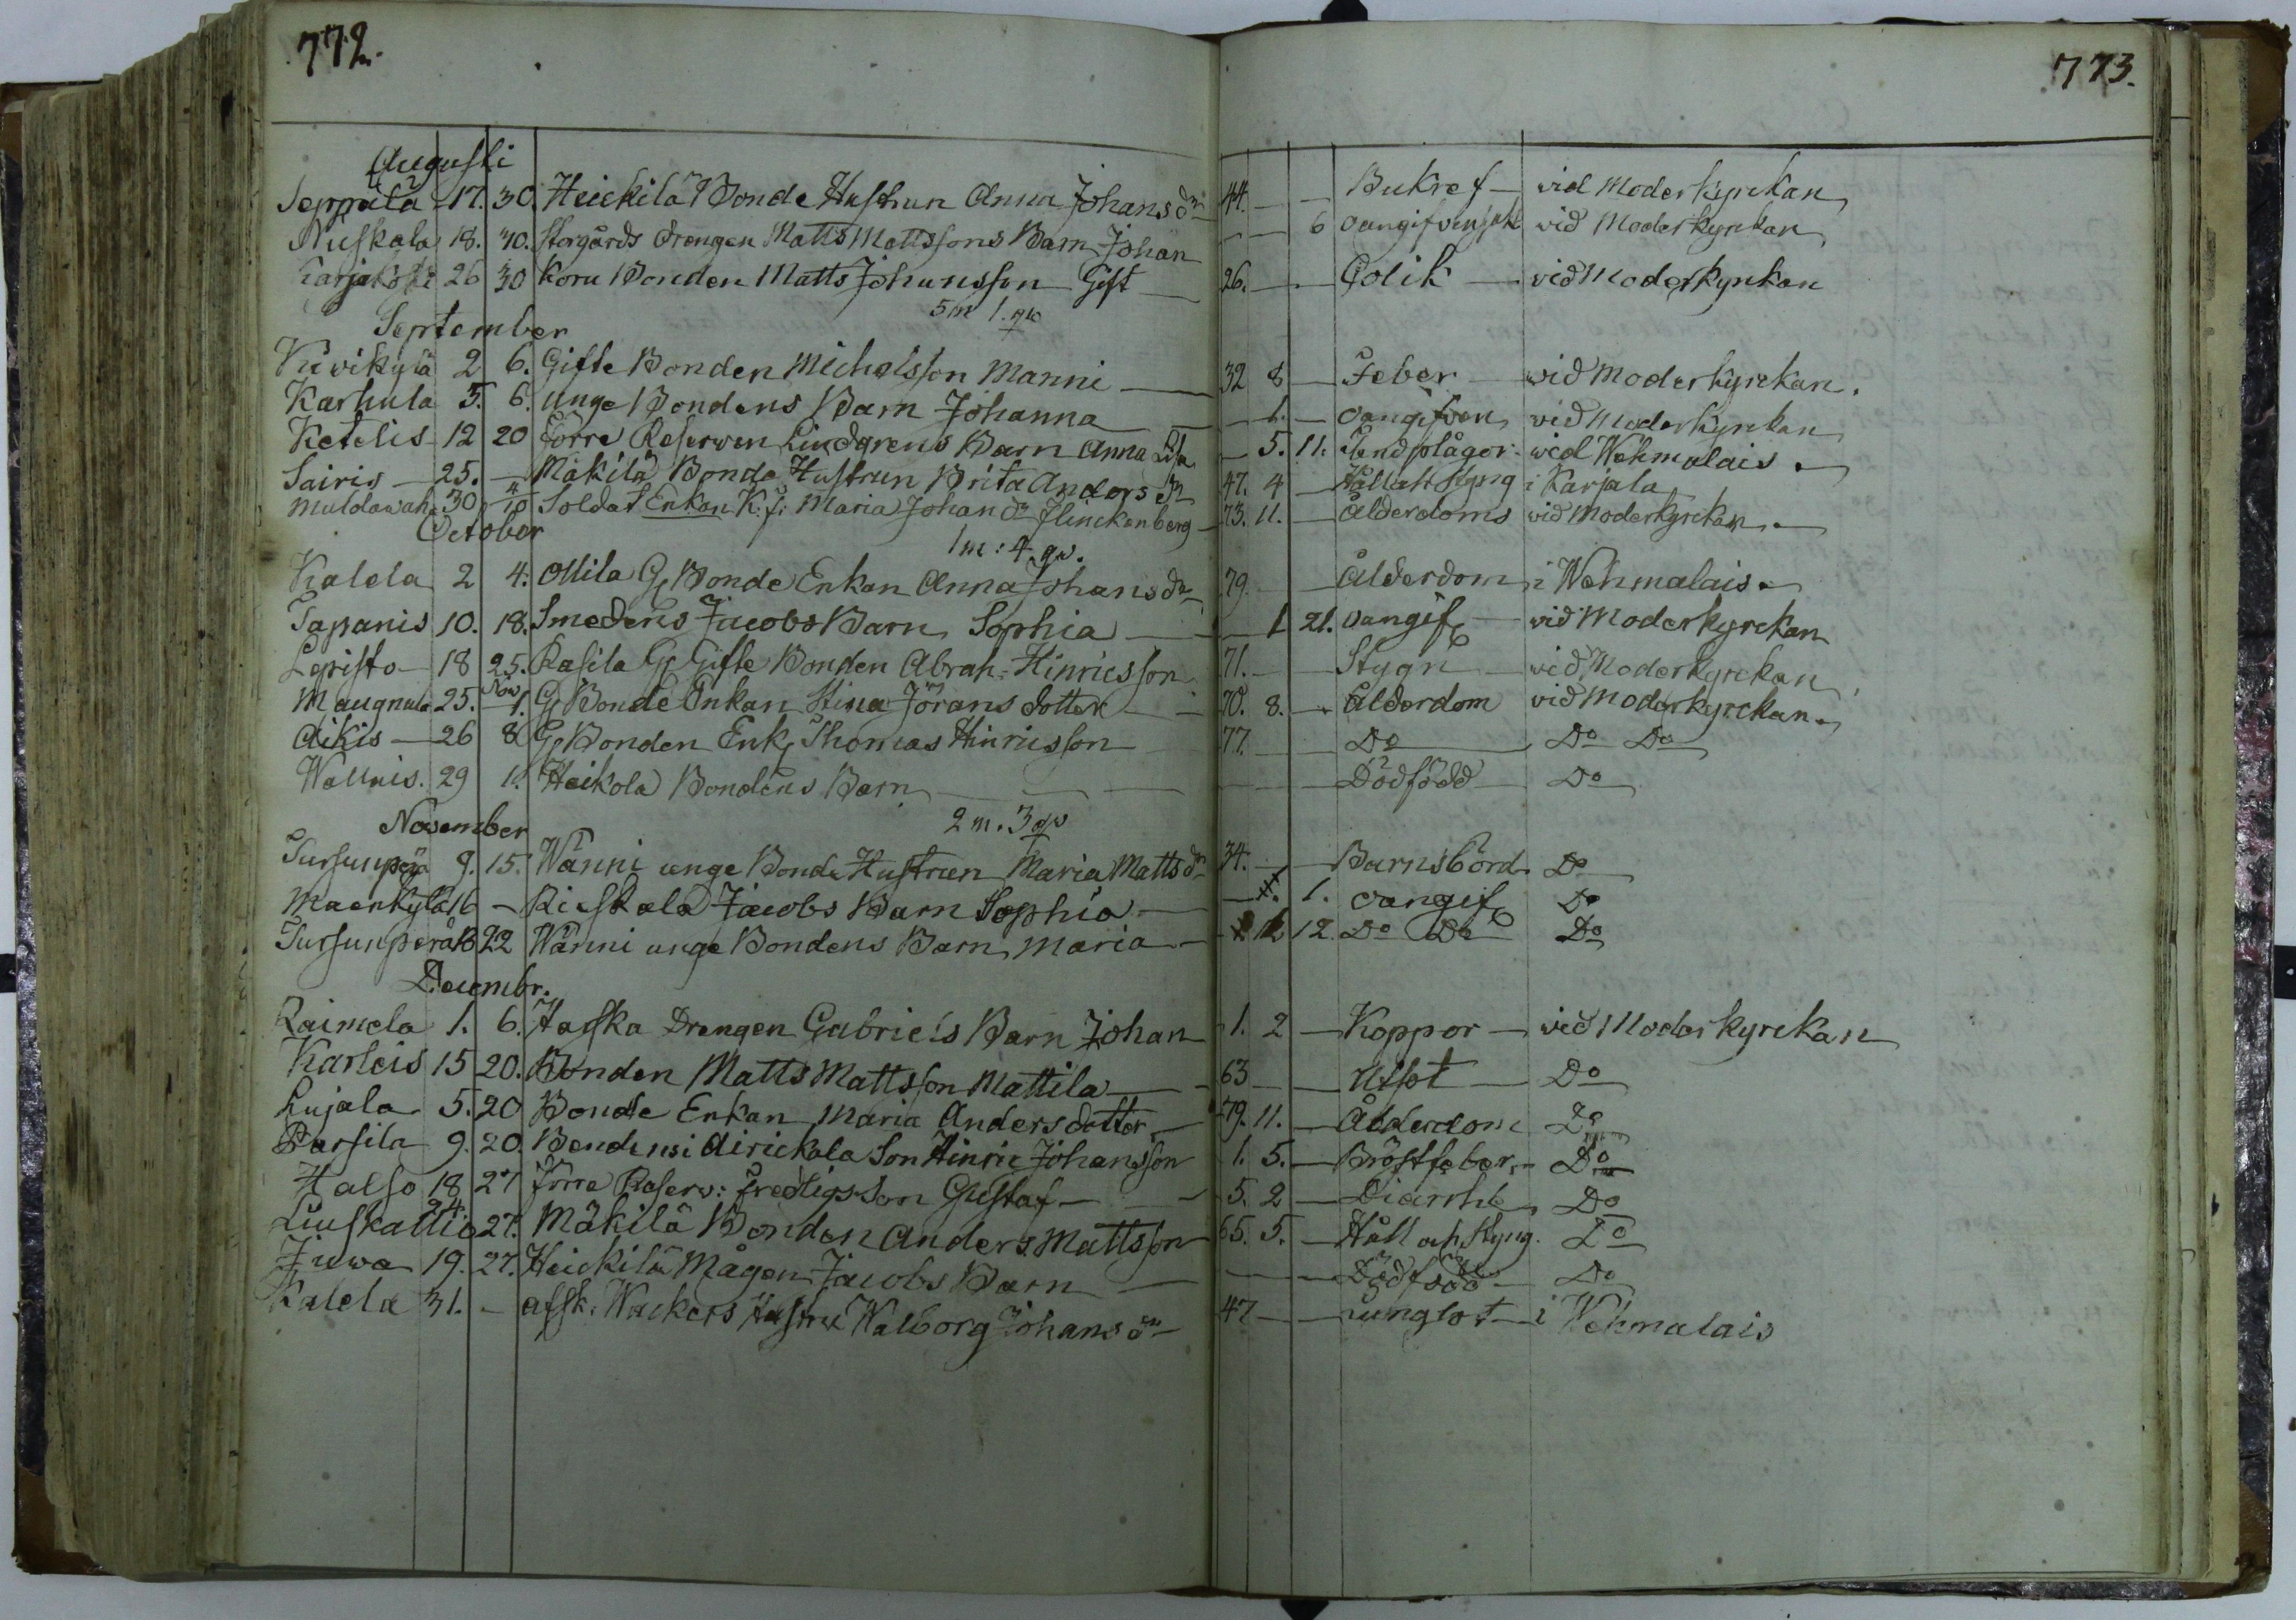 772.
773.
Augusti
Seppälä 17. 30. Heickilä Bonde Hustrun Anna Johansdr 44. — — Bukref — vid Moderkyrckan
Nuskala 18. 30. Storgårds drengen Matts Mattssons Barn Johan — — 6 oangifven vid Moderkyrckan
Karjakoski 26 30 Koru Bonden Matts Johansson Gift — 26. — — Colik — vid Moderkyrckan
5 m 1. qv
September
Kivikylä 2 6. Gifte Bonden Michelsson Manni — 32 8 — Feber — vid Moderkyrckan.
Karhula 5. 6. unge Bondens Barn Johanna — — 1. — oangifven vid Moderkyrckan
Ketelis 12 20 förre Reserven Lindgrens Barn Anna Lisa — 5. 11. Tandplågor. vid Wehmalais.
Sairis — 25. — Mäkilä Bonde Hustrun Brita Andersdr 47. 4 — Håll och styng i Karjala
30 Soldat Enkan K. f. Maria Johandr Flinckenberg — 73. 11. — ålderdoms vid Moderkyrckan. —
October
1 m: 4. qv.
Kalela 2 4. Ollila G. Bonde Enkan Anna Johansdr 79. — Ålderdom i Wehmalais.
Tapanis 10. 18. Smedens Jacobs Barn Sophia — — 1 21. oangif — vid Moderkyrckan
Lepistö — 18 25. Rasila G. Gifte Bonden Abrah: Hinricsson 71. — — Stygn — vid Moderkyrckan
Maugnula 25. Nov 1. G. Bonde Enkan Stina Jörans dotter — 70. 8. — Ålderdom vid Moderkyrckan.
Äikis — 26 8 G. Bonden Enk. Thomas Hinricsson — 77. — Do — Do Do
Wallais. 29 1. Heikola Bondens Barn — — — Dödfödd — Do
November
2 m. 3 qv
Tursunperä 9. 15. Wänni unge Bonde Hustrun Maria Mattsdr 34. — — Barnsbörd Do
Maenkylä 16 — Rieskala Jacobs Barn Sophia — — 1. oangif. Do
Tursunperä 18 22 Wänni unge Bondens Barn Maria — 12. Do Do Do
Decembr.
Raimela 1. 6. Haska Drengen Gabriels Barn Johan 1. 2 — Koppor — vid Moderkyrckan
Karleis 15 20. Bonden Matts Mattsson Mattila — 63 — — Utsot — Do
Lujala 5. 20 Bonde Enkan Maria Andersdotter — 79. 11. — Ålderdom Do
Parsila 9. 20. Bondens i Airickala Son Hinric Johansson 1. 5. — Bröstfeber. — Do
Halso 18 27 förre Reserv: Fredligs Son Gustaf — — 5. 2 — Diarrhe Do
Liuskallio 24. 27. Mäkilä Bonden Anders Mattsson 65. 5. — Håll och styng. Do
Juva 19. 27. Heickilä Mågen Jacobs Barn — — — Dödfödd — Do
Kalela 31. — afsk. Wackers Hustru Walborg Johansdr — 47 — — lungsot — i Wehmalais